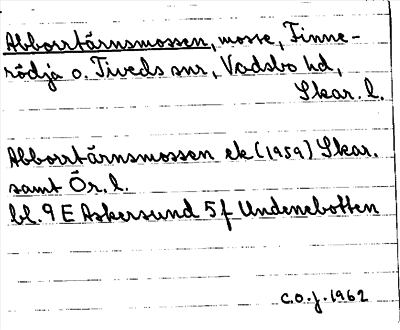 Abborrtärnsmossen, mosse, Finne-
rödja o. Tiveds snr, Vadsbo hd,
Skar. l.
Abborrtärnsmossen ek (1959) Skar.
samt Ör. l.
bl. 9 E Askersund 5 f Undenebotten
C.O.J. 1962